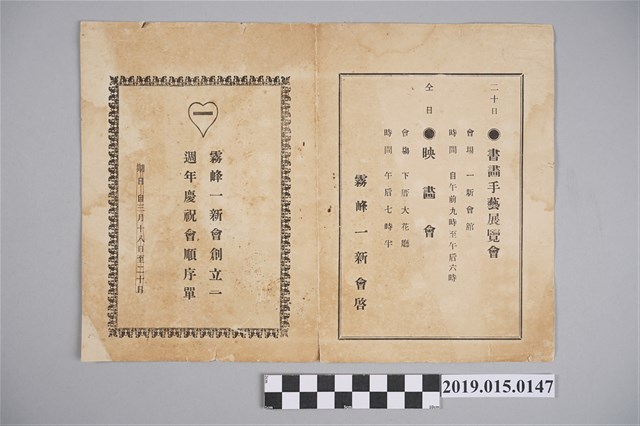 二十日 ●書畫手藝展覽會
會場 一新會館
時間 自午前九時至午后六時
仝日 ●映畫會
會場 下厝大花廳
時間 午后七時半
霧峰一新會啓
一
霧峰一新會創立二
週年慶祝會順序單
期日自三月十八日至二十日
2019.015.0147